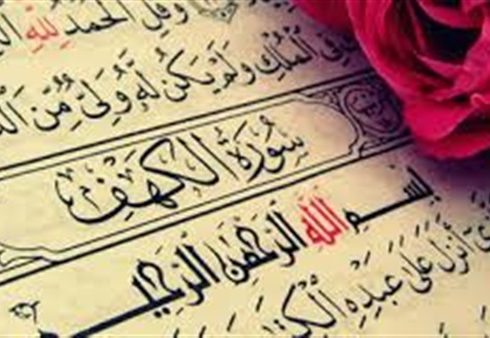 وَقُلِ الْحَمْدُ لِلَّهِ
فِي الْمُلْكِ وَلَمْ يَكُن لَّهُ وَلِيٌّ مِّنَ
سُورَةُ الْكَهْفِ
بِسْمِ اللَّهِ الرَّحْمَنِ الرَّحِيمِ
أَنزَلَ عَلَى عَبْدِهِ الْكِتَابَ